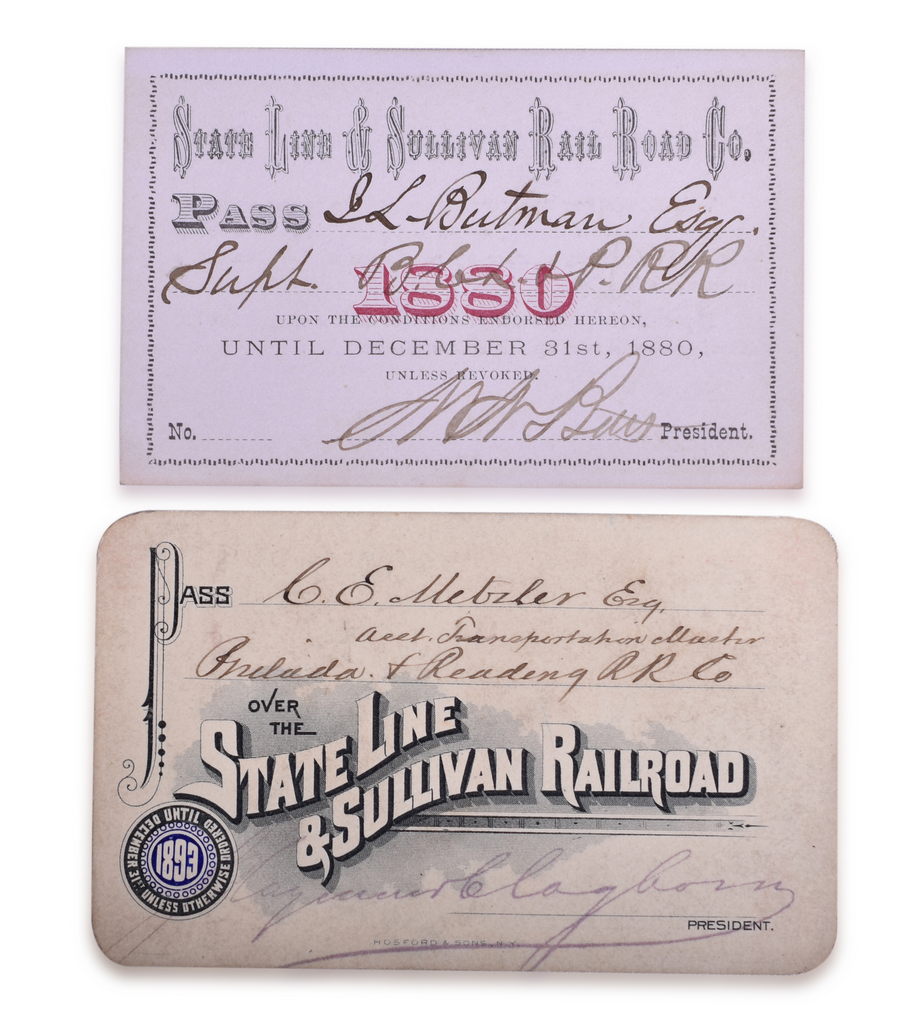 STATE LINE & SULLIVAN RAIL ROAD CO.
PASS I L Butman Esq.
Supt. P. RR
1880
UPON THE CONDITIONS ENDORSED HEREON,
UNTIL DECEMBER 31st, 1880,
UNLESS REVOKED.
No. President.
PASS C. E. Metzler Esq.
Asst. Transportation Master
Philada. & Reading RR Co
OVER
THE
STATE LINE
& SULLIVAN RAILROAD
1893
UNTIL DECEMBER 31ST UNLESS OTHERWISE ORDERED
Clagborn
PRESIDENT.
HOSFORD & SONS, N.Y.